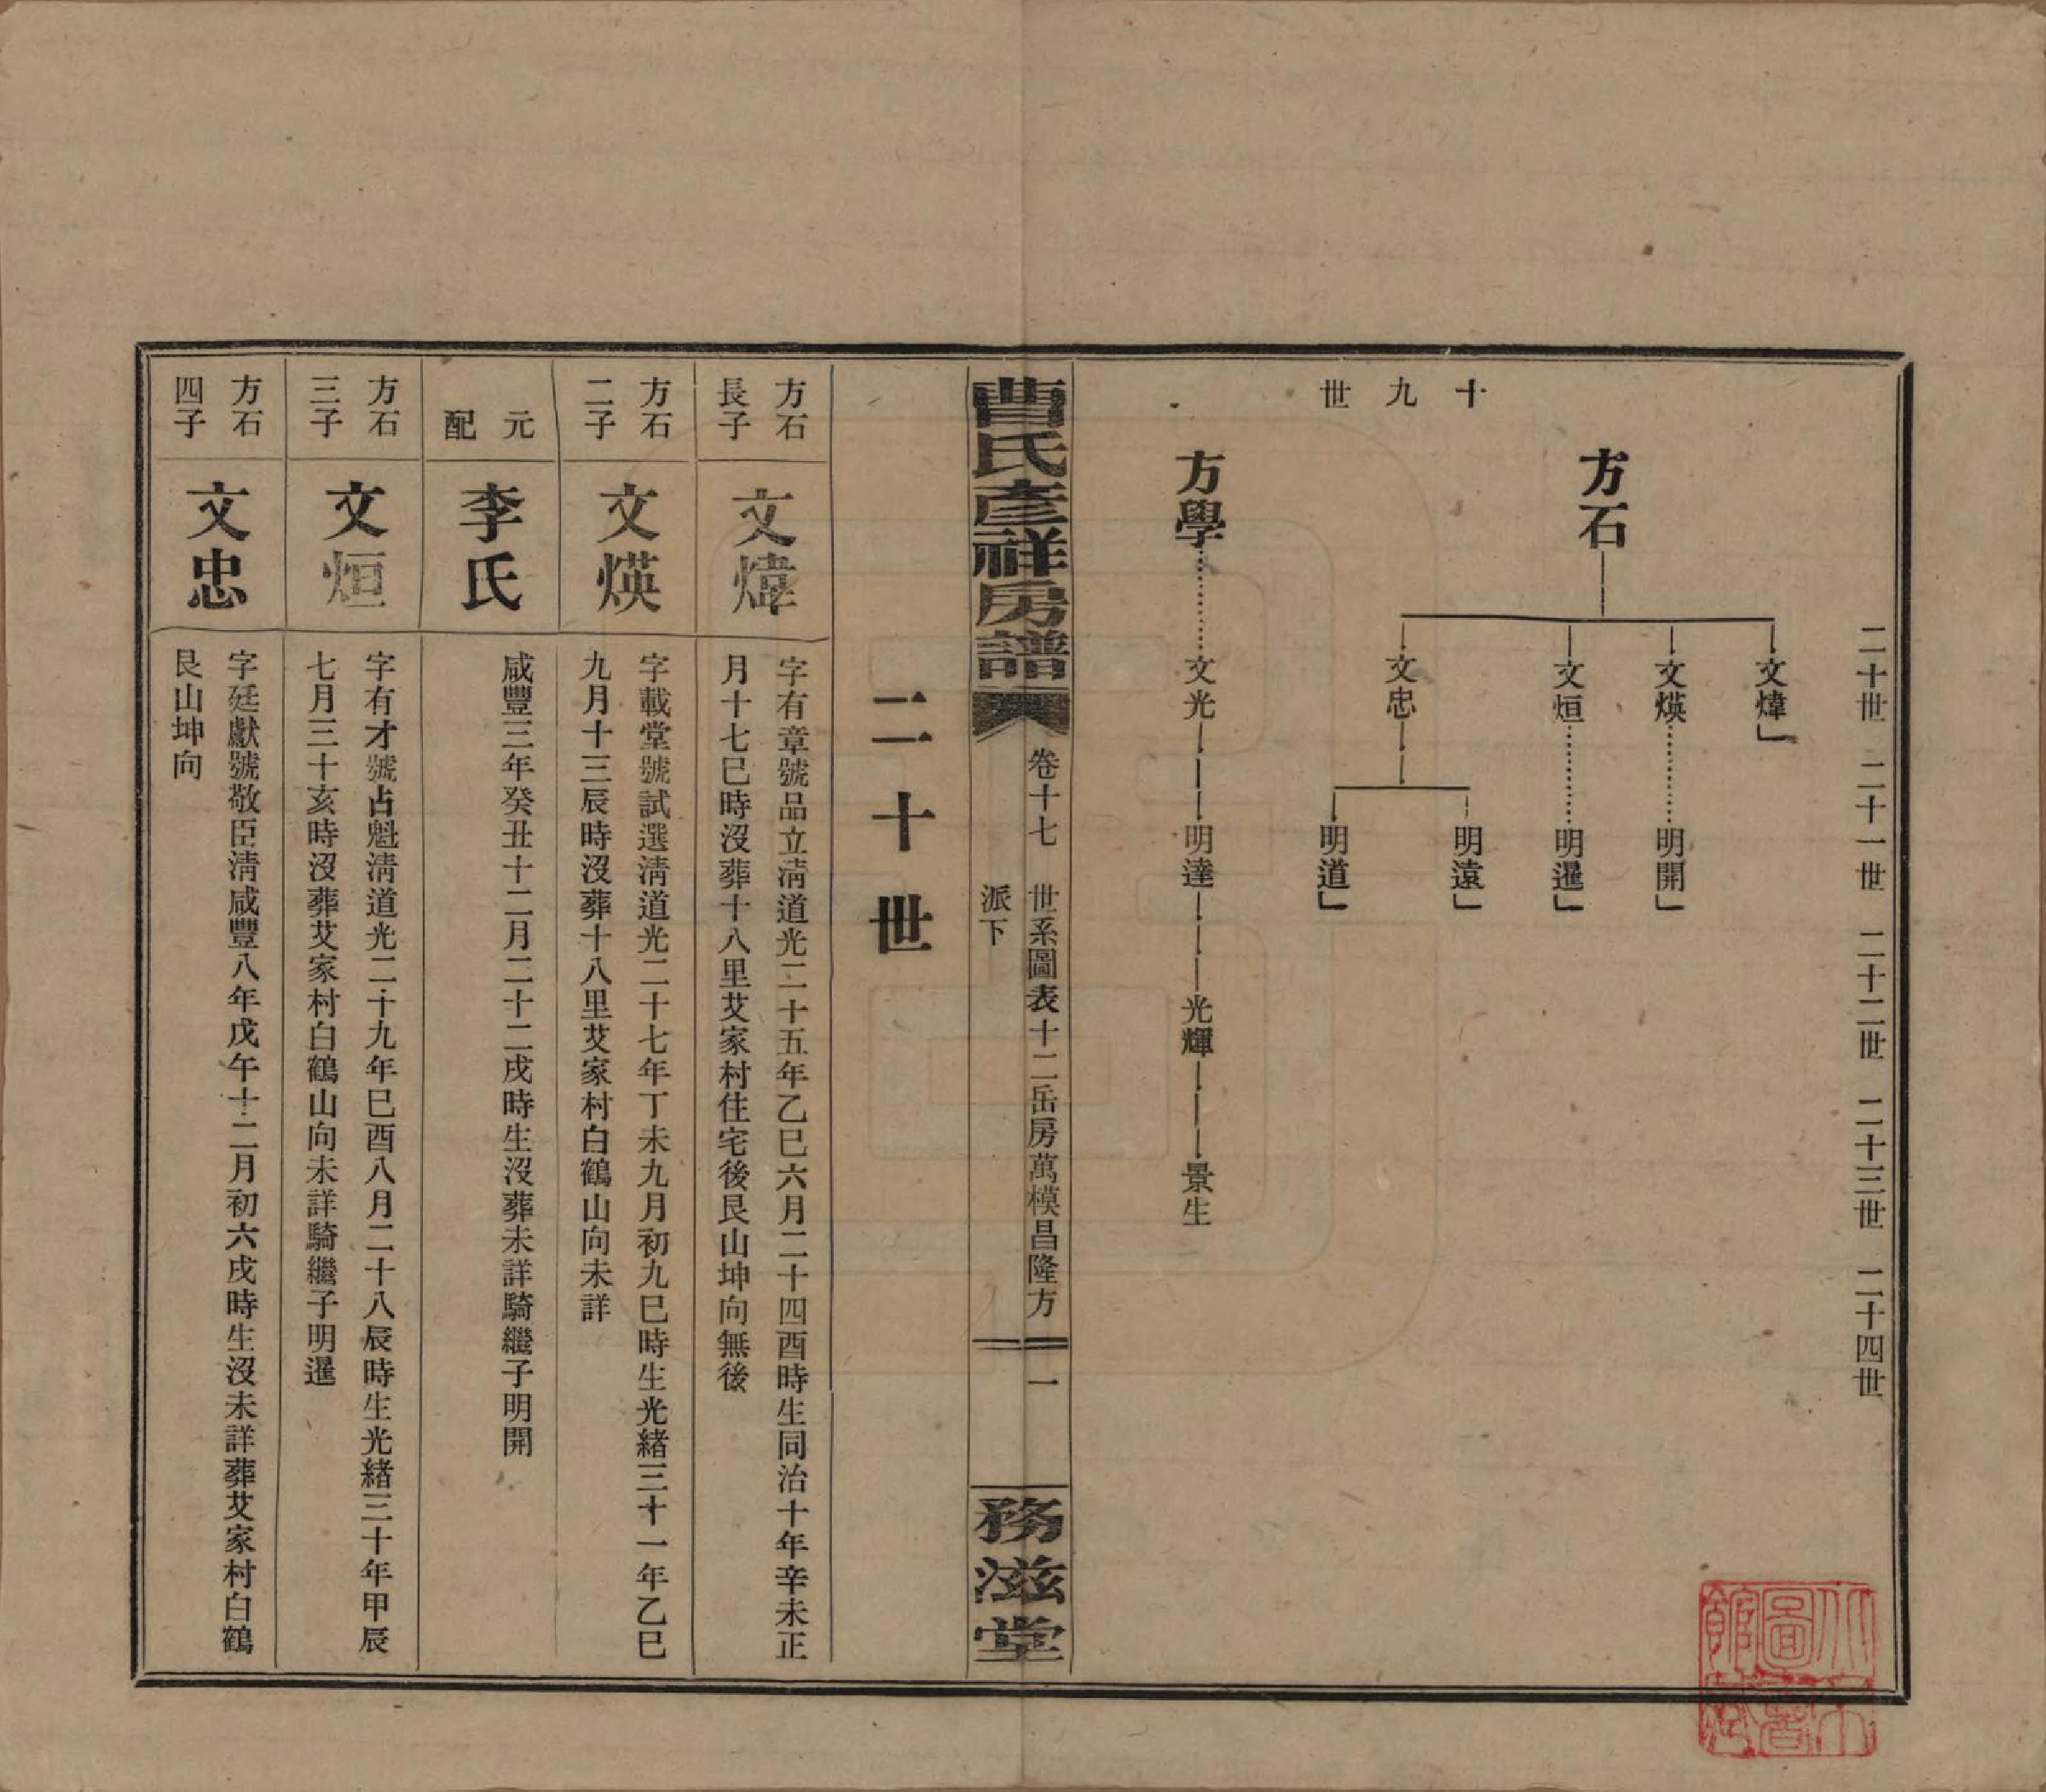 十九世
二十世
二十一世
二十二世
二十三世
二十四世
方石
文煒」
文煐
明開」
文烜
明暹」
文忠
明遠」
明道」
方學
文光
明達
光輝
景生
曹氏彥祥房譜
卷十七
世系圖表十二岳房萬模昌隆方
派下
一
務滋堂
二十世
方石
長子
文煒
字有章號品立淸道光二十五年乙巳六月二十四酉時生同治十年辛未正
月十七巳時沒葬十八里艾家村住宅後艮山坤向無後
方石
二子
文煐
字載堂號試選淸道光二十七年丁未九月初九巳時生光緒三十一年乙巳
九月十三辰時沒葬十八里艾家村白鶴山向未詳
元
配
李氏
咸豐三年癸丑十二月二十二戌時生沒葬未詳騎繼子明開
方石
三子
文烜
字有才號占魁淸道光二十九年巳酉八月二十八辰時生光緒三十年甲辰
七月三十亥時沒葬艾家村白鶴山向未詳騎繼子明暹
方石
四子
文忠
字廷獻號敬臣淸咸豐八年戊午十二月初六戌時生沒未詳葬艾家村白鶴
艮山坤向